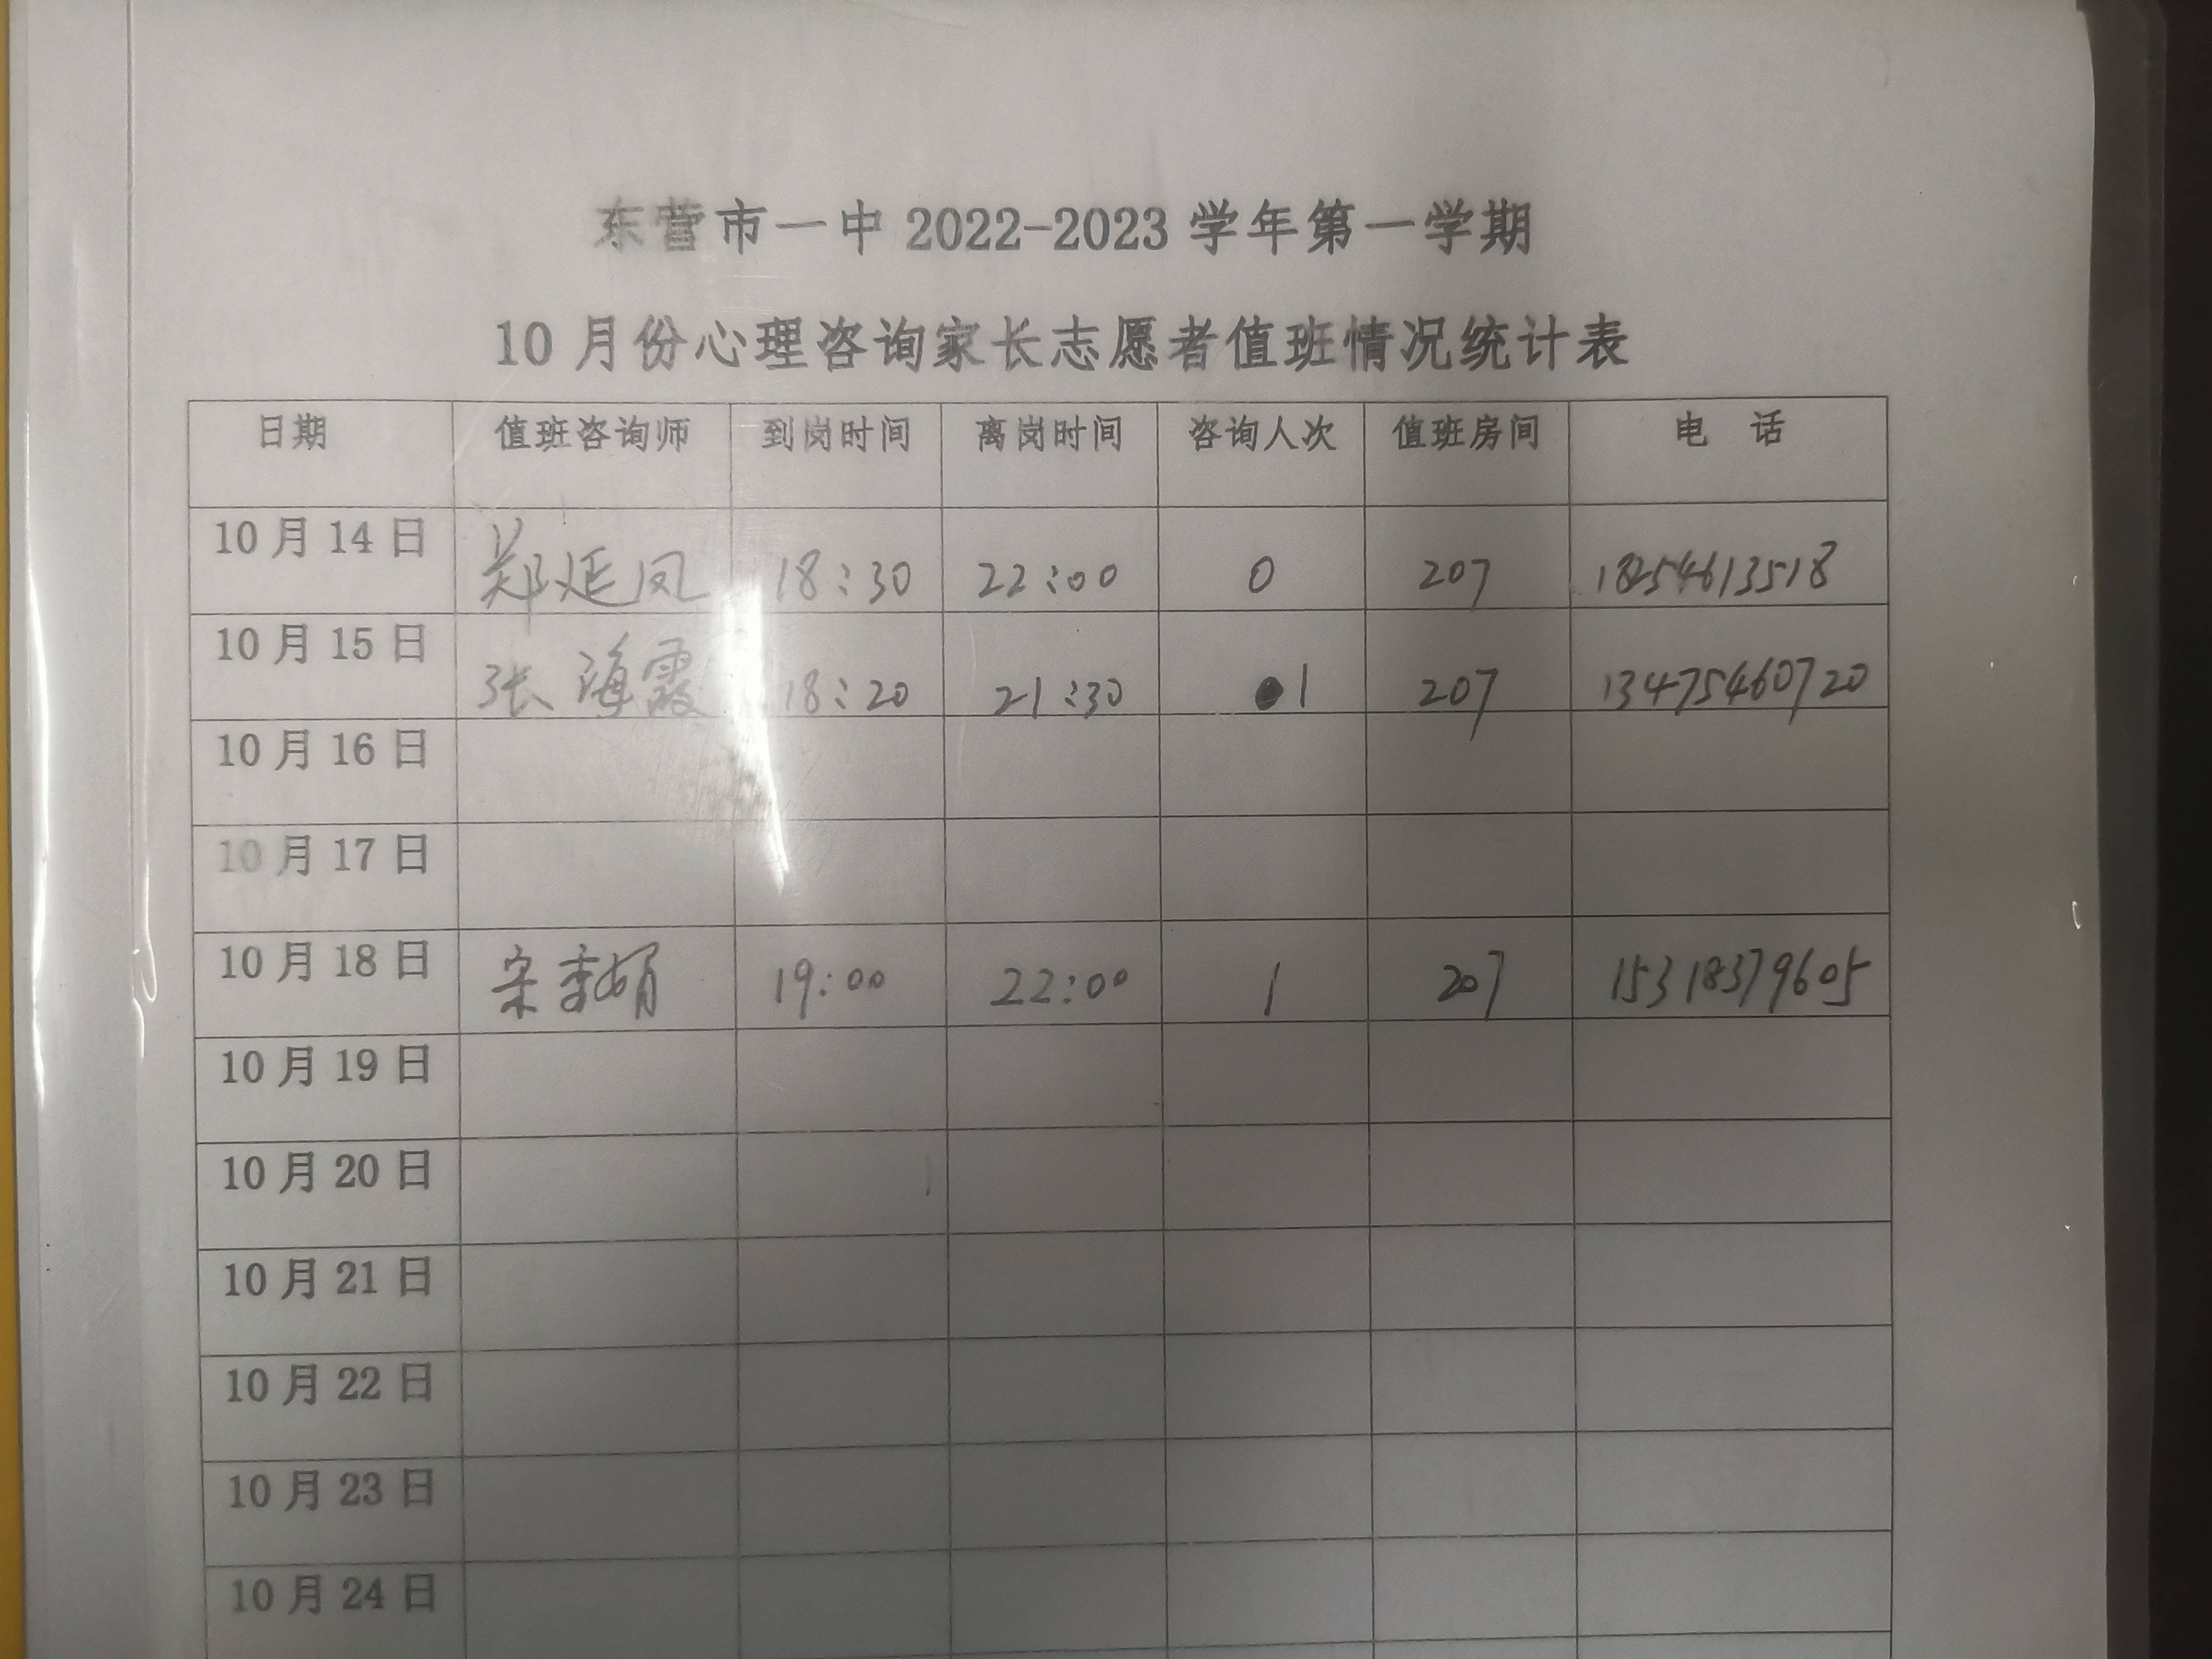 东营市一中 2022-2023 学年第一学期
10 月份心理咨询家长志愿者值班情况统计表
日期 值班咨询师 到岗时间 离岗时间 咨询人次 值班房间 电 话
10 月 14 日 郑延凤 18:30 22:00 0 207 18254613518
10 月 15 日 张海霞 18:20 21:30 1 207 13475460720
10 月 16 日
10 月 17 日
10 月 18 日 宋秀娟 19:00 22:00 1 207 15318379605
10 月 19 日
10 月 20 日
10 月 21 日
10 月 22 日
10 月 23 日
10 月 24 日